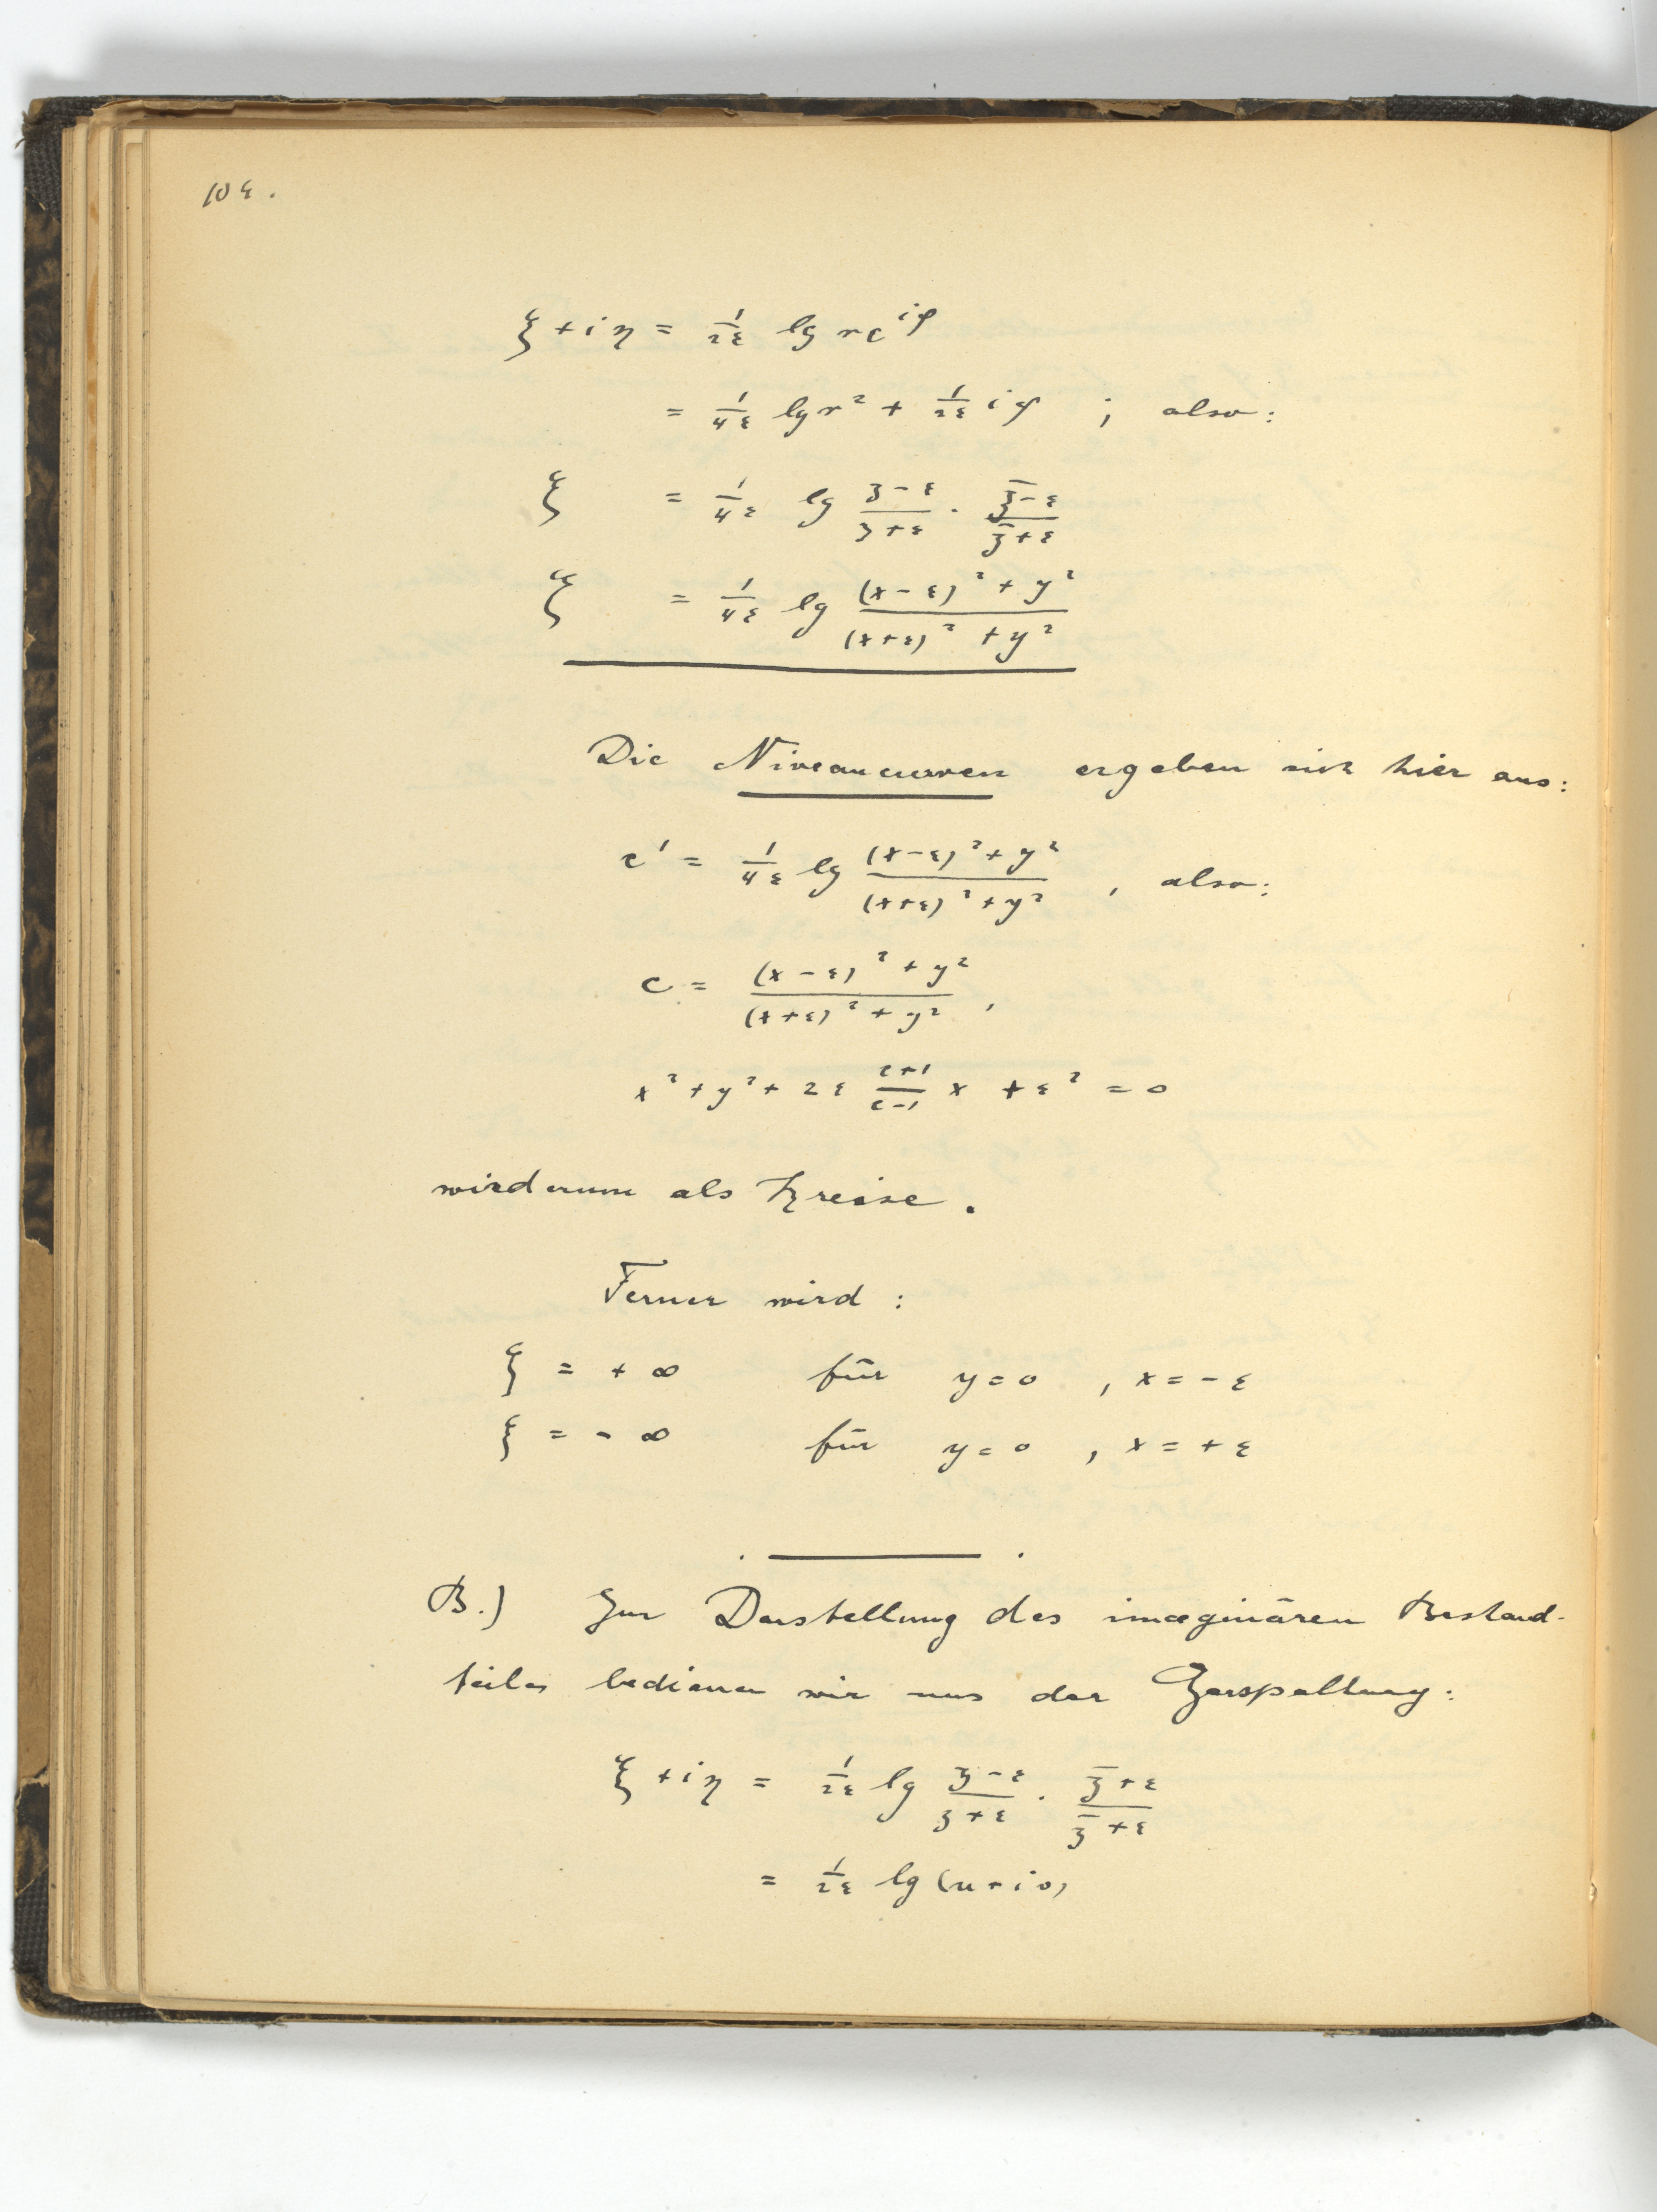 104.
ξ + iη = 1/2ε lg re^{iφ}
= 1/4ε lg r² + 1/2ε iφ ; also:
ξ = 1/4ε lg (z-ε)/(z+ε) · (z̄-ε)/(z̄+ε)
ξ = 1/4ε lg ((x-ε)² + y²)/((x+ε)² + y²)
Die Niveaucurven ergeben sich hier aus:
c' = 1/4ε lg ((x-ε)² + y²)/((x+ε)² + y²) , also:
c = ((x-ε)² + y²)/((x+ε)² + y²) ,
x² + y² + 2ε (c+1)/(c-1) x + ε² = 0
wiederum als Kreise.
Ferner wird :
ξ = + ∞ für y = 0 , x = - ε
ξ = - ∞ für y = 0 , x = + ε
B.) Zur Darstellung des imaginären Bestand-
teiles bedienen wir uns der Zerspaltung:
ξ + iη = 1/2ε lg (z-ε)/(z+ε) · (z̄+ε)/(z̄+ε)
= 1/2ε lg (u + iv)